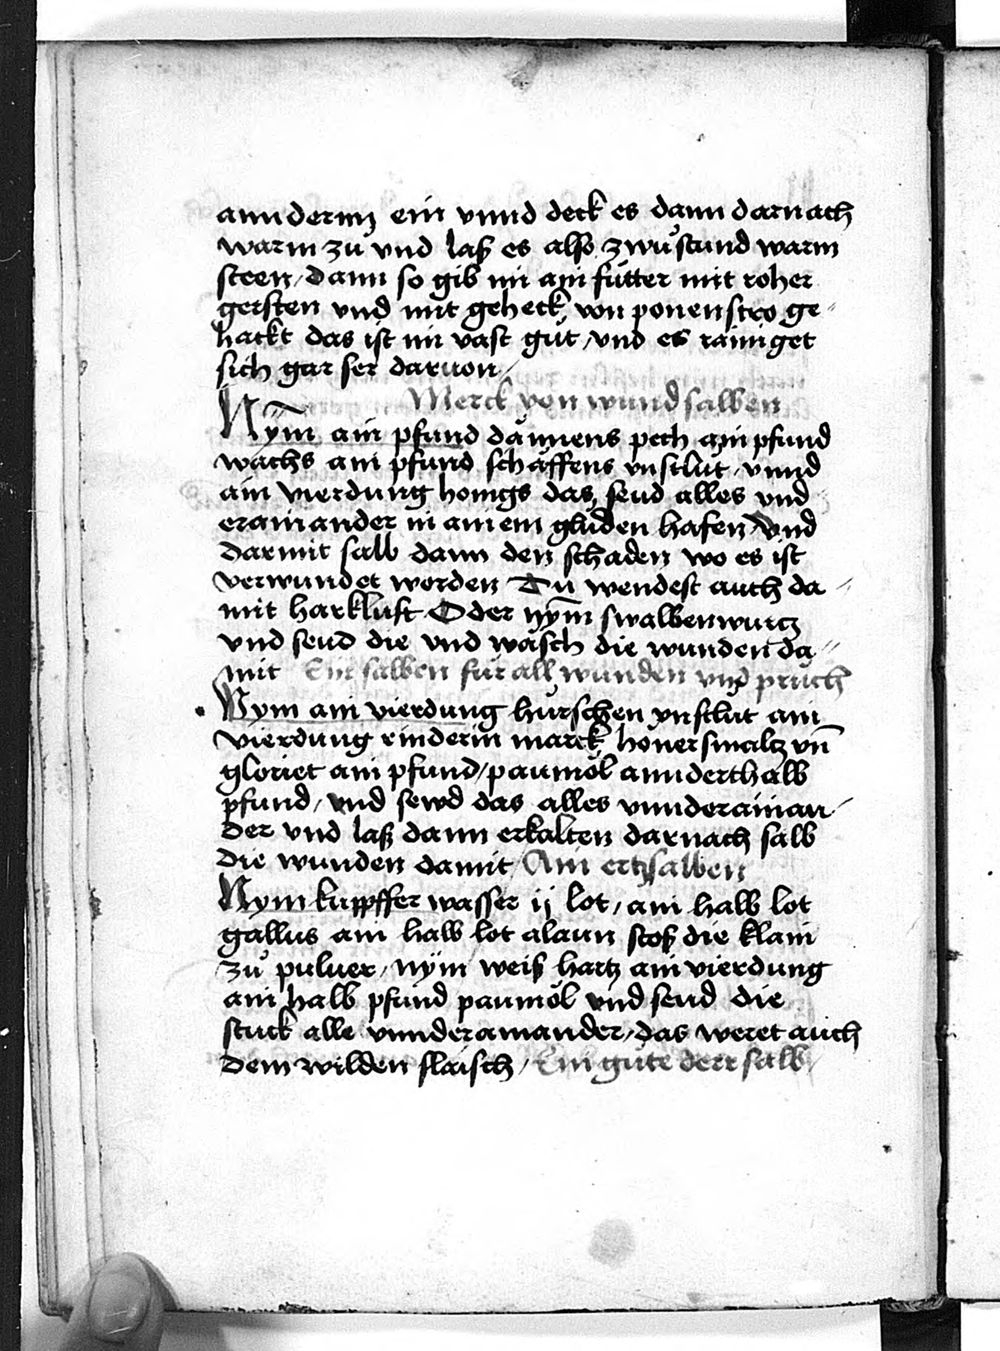 annderm ein vnnd deck es dann darnach
warm zů vnd laß es also zwů stund warm
steen / dann so gib im ain fůtter mit roher
gersten vnd mit geheck von ponenstro ge //
hackt das ist im vast gůt / vnd es rainiget
sich gar ser daruon /
Merck von wund salben
Nÿm̄ ain pfund dännens pech ain pfund
wachs ain pfund schäffens vnslut / vnnd
ain vierdung honigs das seud alles vnd
erainander in ainem gluden hafen / vnd
darmit salb dann den schaden wo es ist
verwundet worden Du wendest auch da //
mit harkluft Oder nym̄ swalbenwurtz
vnd seud die vnd wäsch die wunden da //
mit Ein salben für all wunden vnd prüch
Nym ain vierdung hürschen vnslut ain
vierdung rinderin marck hönersmaltz vn̄
gloriet ain pfund / paumöl annderthalb
pfund / vnd sewd das alles vnnderainan /
der vnd laß dann erkalten darnach salb
die wunden damit / Ain ertzsalben
Nym kupffer wasser ij lot / ain halb lot
gallus ain halb lot alaun stoß die klain
zů puluer / nÿm weiß hartz ain vierdung
ain halb pfund paumöl vnd seud die
stuck alle vnnderainander / das weret auch
dem wilden flaisch / Ein gute derr salb